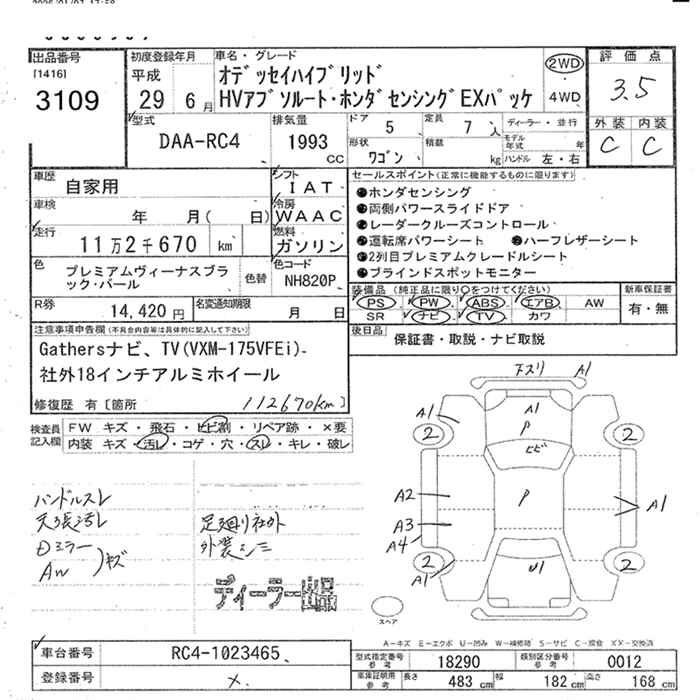 出品番号 [1416] 3109
初度登録年月 平成 29年 6月
車名・グレード
オデッセイハイブリッド
HVアブソルート・ホンダセンシングEXパッケ
2WD
4WD
評価点 3.5
外装 内装
C C
型式 DAA-RC4
排気量 1993 CC
ドア 5
定員 7人
形状 ワゴン
積載 kg
ディーラー・並行
モデル年式 年
ハンドル 左・右
車歴 自家用
シフト IAT
車検 年 月( 日)
冷房 WAAC
走行 11万2千670 km
燃料 ガソリン
色 プレミアムヴィーナスブラック・パール
色替
色コード NH820P
R券 14,420円
名変通知期限 月 日
セールスポイント(正常に機能するものに限ります)
●ホンダセンシング
●両側パワースライドドア
●レーダークルーズコントロール
●運転席パワーシート ●ハーフレザーシート
●2列目プレミアムクレードルシート
●ブラインドスポットモニター
装備品 (純正品に限り○をつけてください)
PS PW ABS エアB AW
SR ナビ TV カワ
新車保証書
有・無
後日品 保証書・取説・ナビ取説
注意事項申告欄(不具合内容等は具体的に記入して下さい)
Gathersナビ、TV(VXM-175VFEi)
社外18インチアルミホイール
修復歴 有[箇所 112670km]
検査員記入欄
FW キズ・飛石・ヒビ割・リペア跡・×要
内装 キズ・汚レ・コゲ・穴・スレ・キレ・破レ
ハンドルスレ
天張汚レ
Dミラー
AW
キズ
足廻り社外
外装シミ
ディーラー出品
下スリ A1
A1 A1
P
2 2
ヒビ
A2 P A1
A3
A4
2 2
A1 U1
スペア
A-キズ E-エクボ U-凹み W-補修跡 S-サビ C-腐食 XX-交換済
車台番号 RC4-1023465
登録番号 ×
型式指定番号 参考 18290
類別区分番号 参考 0012
車庫証明用 参考 長さ 483cm 幅 182cm 高さ 168cm